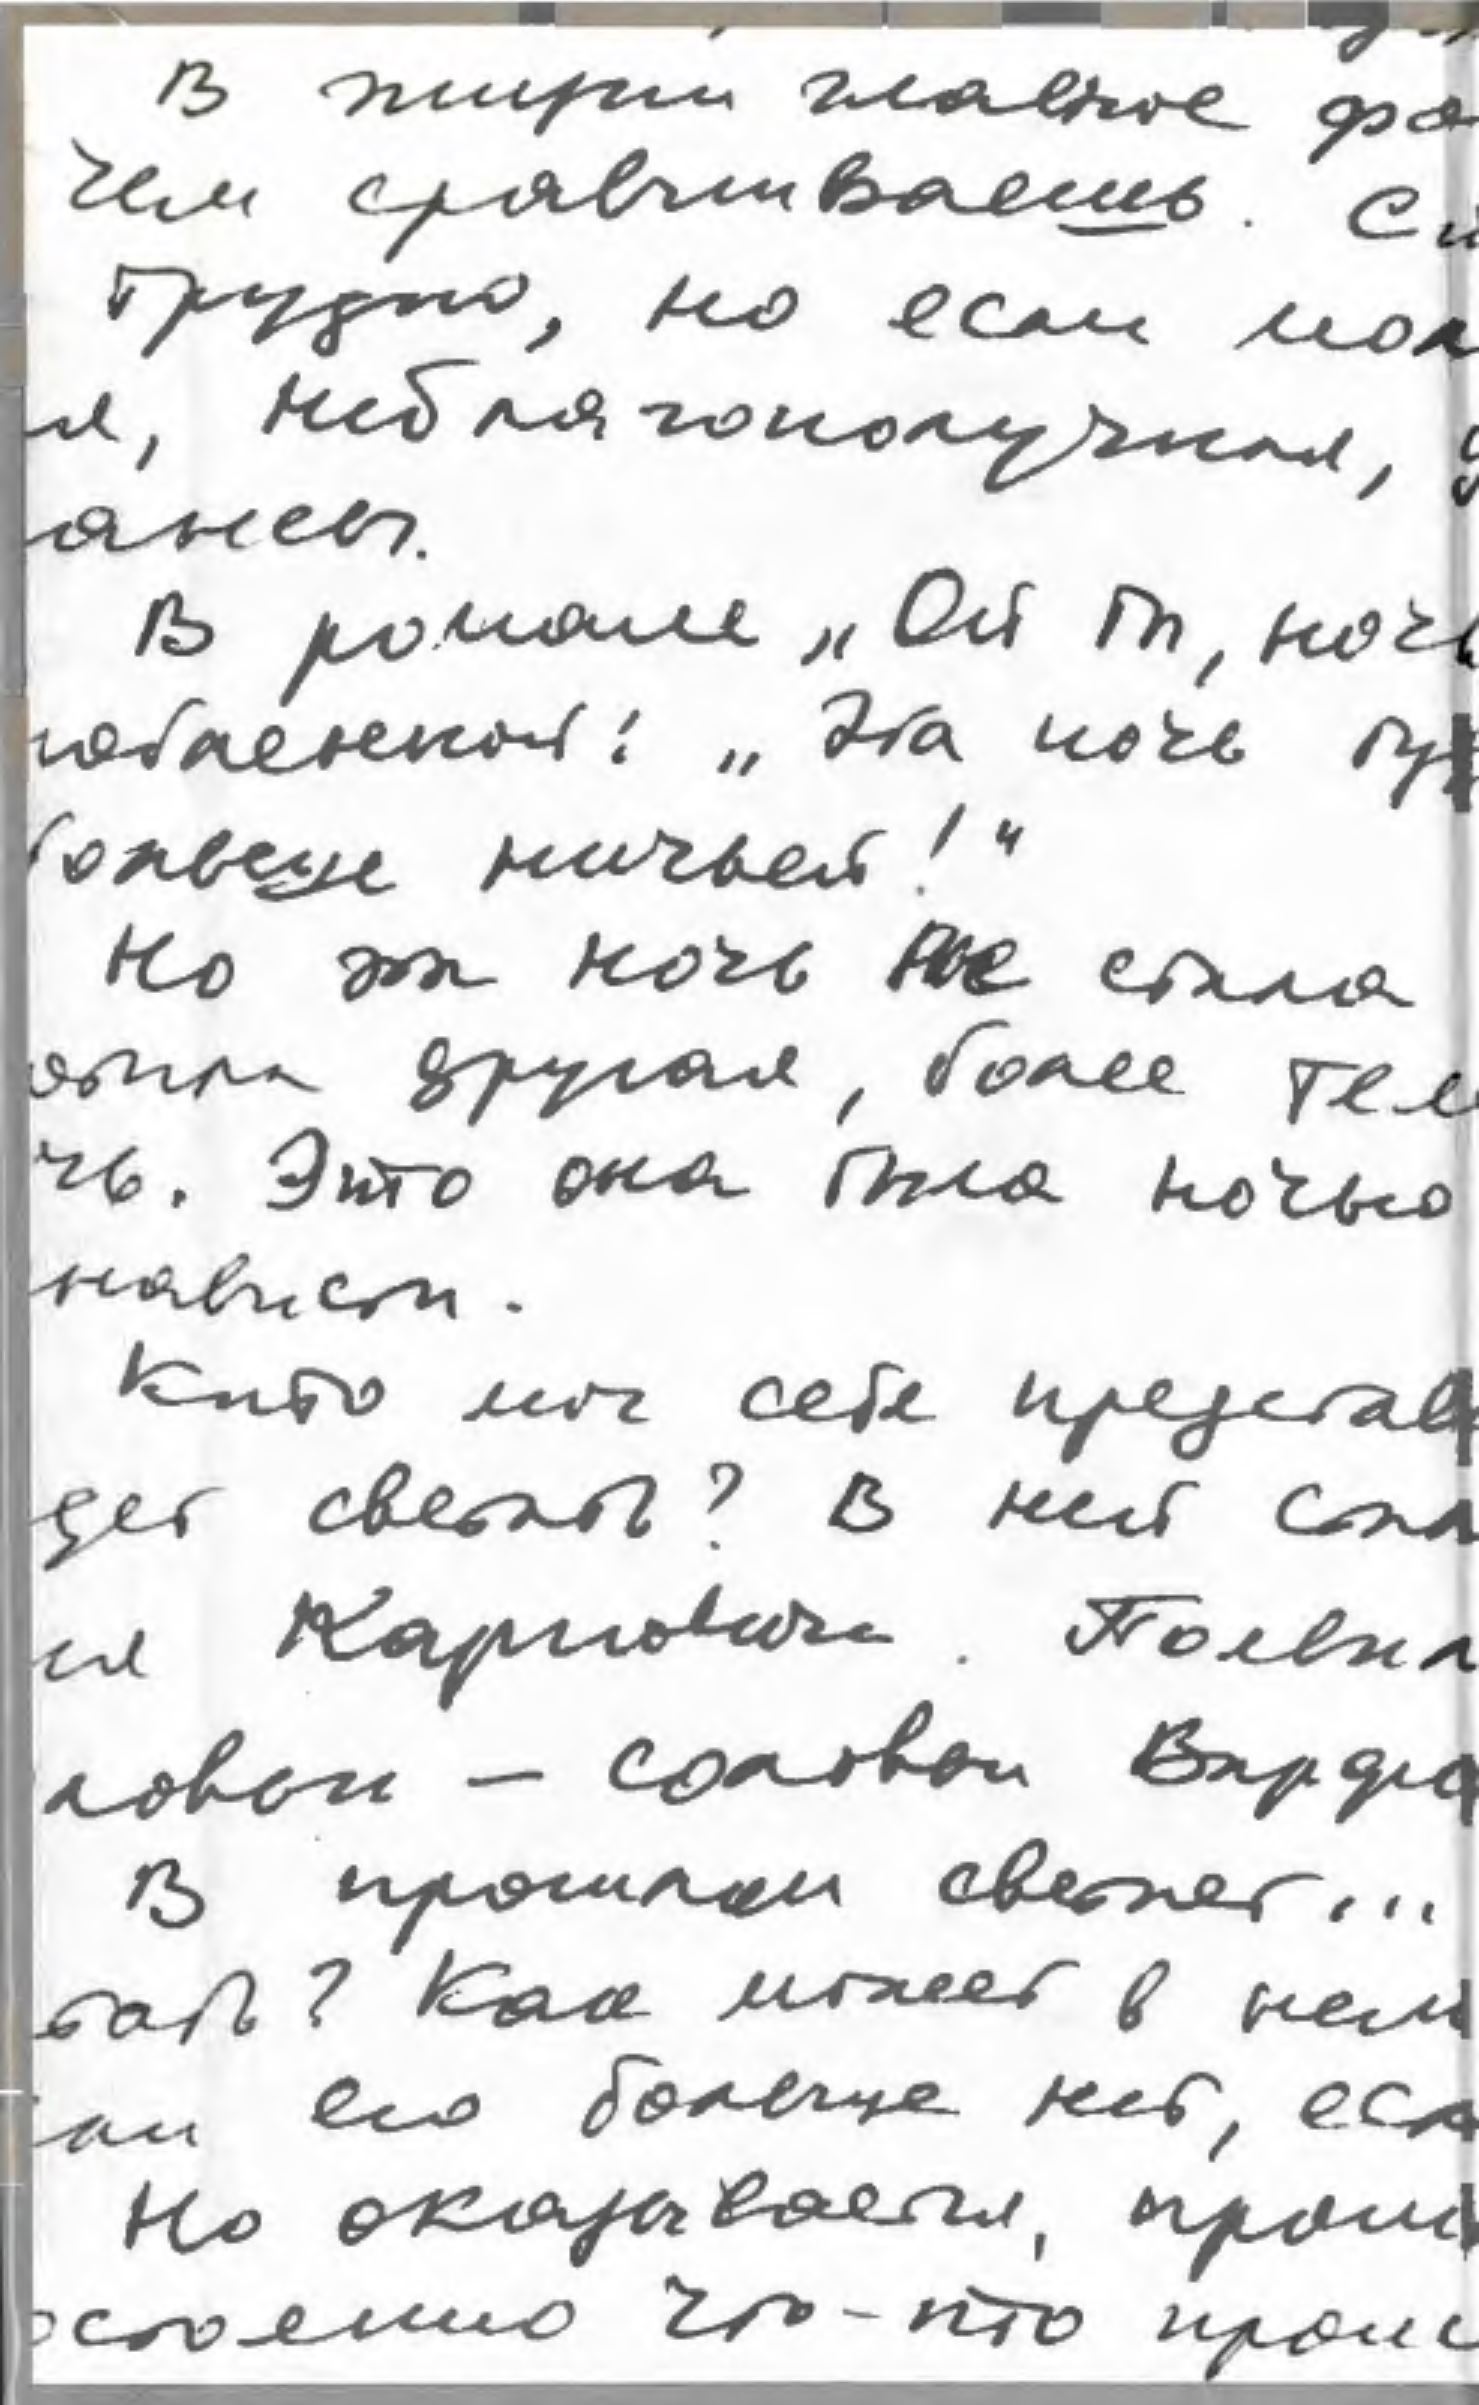 В жизни главное фо
чем сравниваешь. Си
трудно, но если мол
я, неблагополучная, у
ансы.
В романе „Ой ты, ночь
мбаевской: „Эта ночь бу
больше ничьей!“
Но эта ночь не стала
была другая, более тем
чь. Это она была ночью
нависти.
Кто мог себе представ
дет светать? В ней ста
ия Карповича. Появил
ловьи – соловьи Вард
В прошлом светает...
тать? Как может в нем
ли его больше нет, есл
Но оказывается, прош
остоянно что-то прои